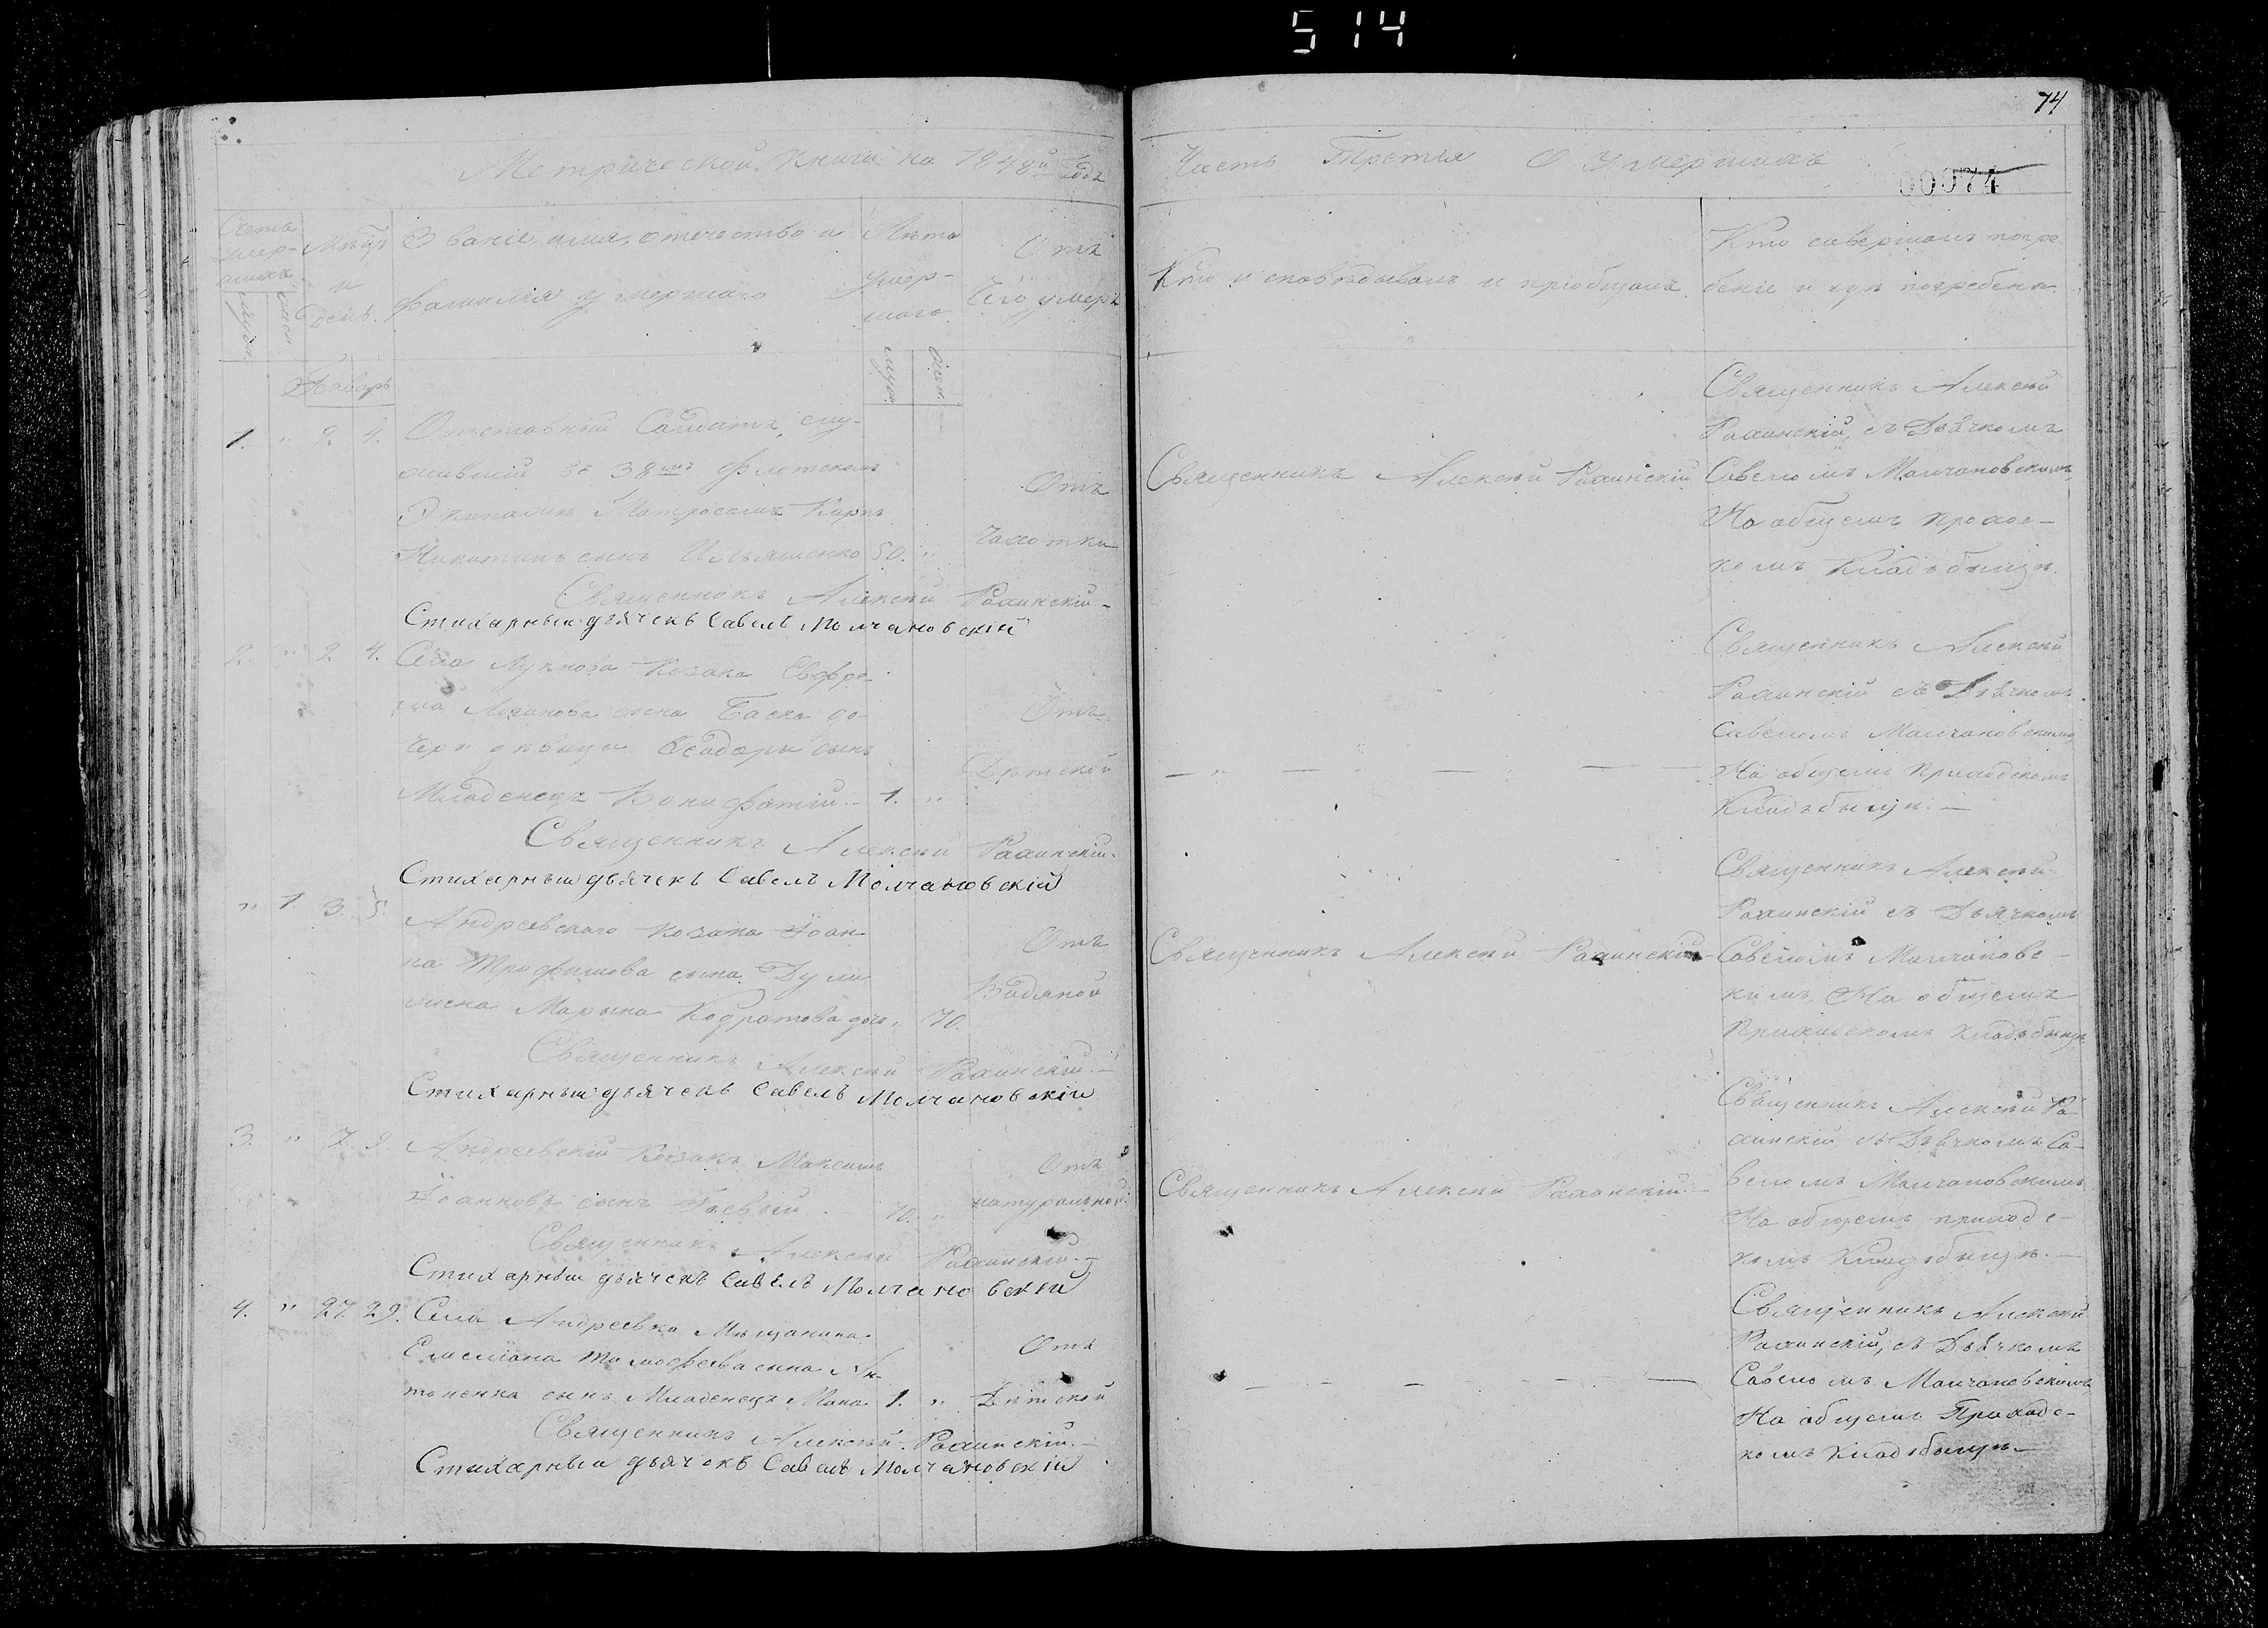 514
74
Метрической Книги на 1848й годъ
Часть Третія О Умершихъ
00074
Счетъ умер-шихъ
Мѣсяцъ и день.
Званіе, имя, отечество и
фамилія умершаго
Лѣта
умер-
шаго
Отъ
Чего умеръ
Кто исповѣдывалъ и пріобщалъ.
Кто совершалъ погре
беніе и гдѣ погребенъ.
Январь
1. " 2. 4.
Отставный Солдатъ, слу-
жившій въ 38мъ Флотскомъ
Экипажѣ Матросомъ Карпъ
Никитинъ сынъ Ильяшенко 50. "
Отъ
Чахотки
Священникъ Алексѣй Рахинскій
Священникъ Алексѣй
Рахинскій, съ Дьячкомъ
Савеломъ Молчановскимъ,
На общемъ Приход-
комъ Кладбыщѣ.
Священникъ Алексѣй Рахинскій.-
Стихарный дьячекъ Савелъ Молчановскій
2. " 2 4.
Села Козака
сына до-
чери дѣвицы Ѳеодоры сынъ
Младенецъ Вонифатій.- 1. "
Отъ
Дѣтской
Священникъ Алексѣй
Рахинскій съ Дьячкомъ
Савеломъ Молчановскимъ,
На общемъ Приходскомъ
Кладъбыщѣ.—
Священникъ Алексѣй Рахинскій.
Стихарный дьячекъ Савелъ Молчановскій
" 1. 3. 5.
Андреевского Козака Іоан-
на Трофимова сына
жена Марина Кодратова дочь, 70.
Отъ
Водяной
Священникъ Алексѣй Рахинскій
Священникъ Алексѣй
Рахинскій съ Дьячкомъ
Савеломъ Молчановс-
кимъ, На общемъ
Приходскомъ Кладъбыщѣ
Священникъ Алексѣй Рахинскій.-
Стихарный дьячекъ Савелъ Молчановскій
3. " 7. 9.
Андреевскій Козакъ Максимъ
Іоанновъ сынъ 70. "
Отъ
натуральной
Священникъ Алексѣй Рахинскій.-
Священникъ Алексѣй Ра-
хинскій съ Дьячкомъ Са-
веломъ Молчановскимъ
На общемъ приходс-
комъ Кладъбыщѣ.—
Священникъ Алексѣй Рахинскій.-
Стихарный дьячекъ Савелъ Молчановскій
4. " 27. 29.
Села Андреевки Мѣщанина
Емеліана Тимофеева сына Ан-
тоненка сынъ Младенецъ 1. "
Отъ
Дѣтской
Священникъ Алексѣй
Рахинскій, съ Дьячкомъ
Савеломъ Молчановскимъ
На общемъ Приходс-
комъ Кладъбыщѣ.—
Священникъ Алексѣй Рахинскій.-
Стихарный дьячекъ Савелъ Молчановскій